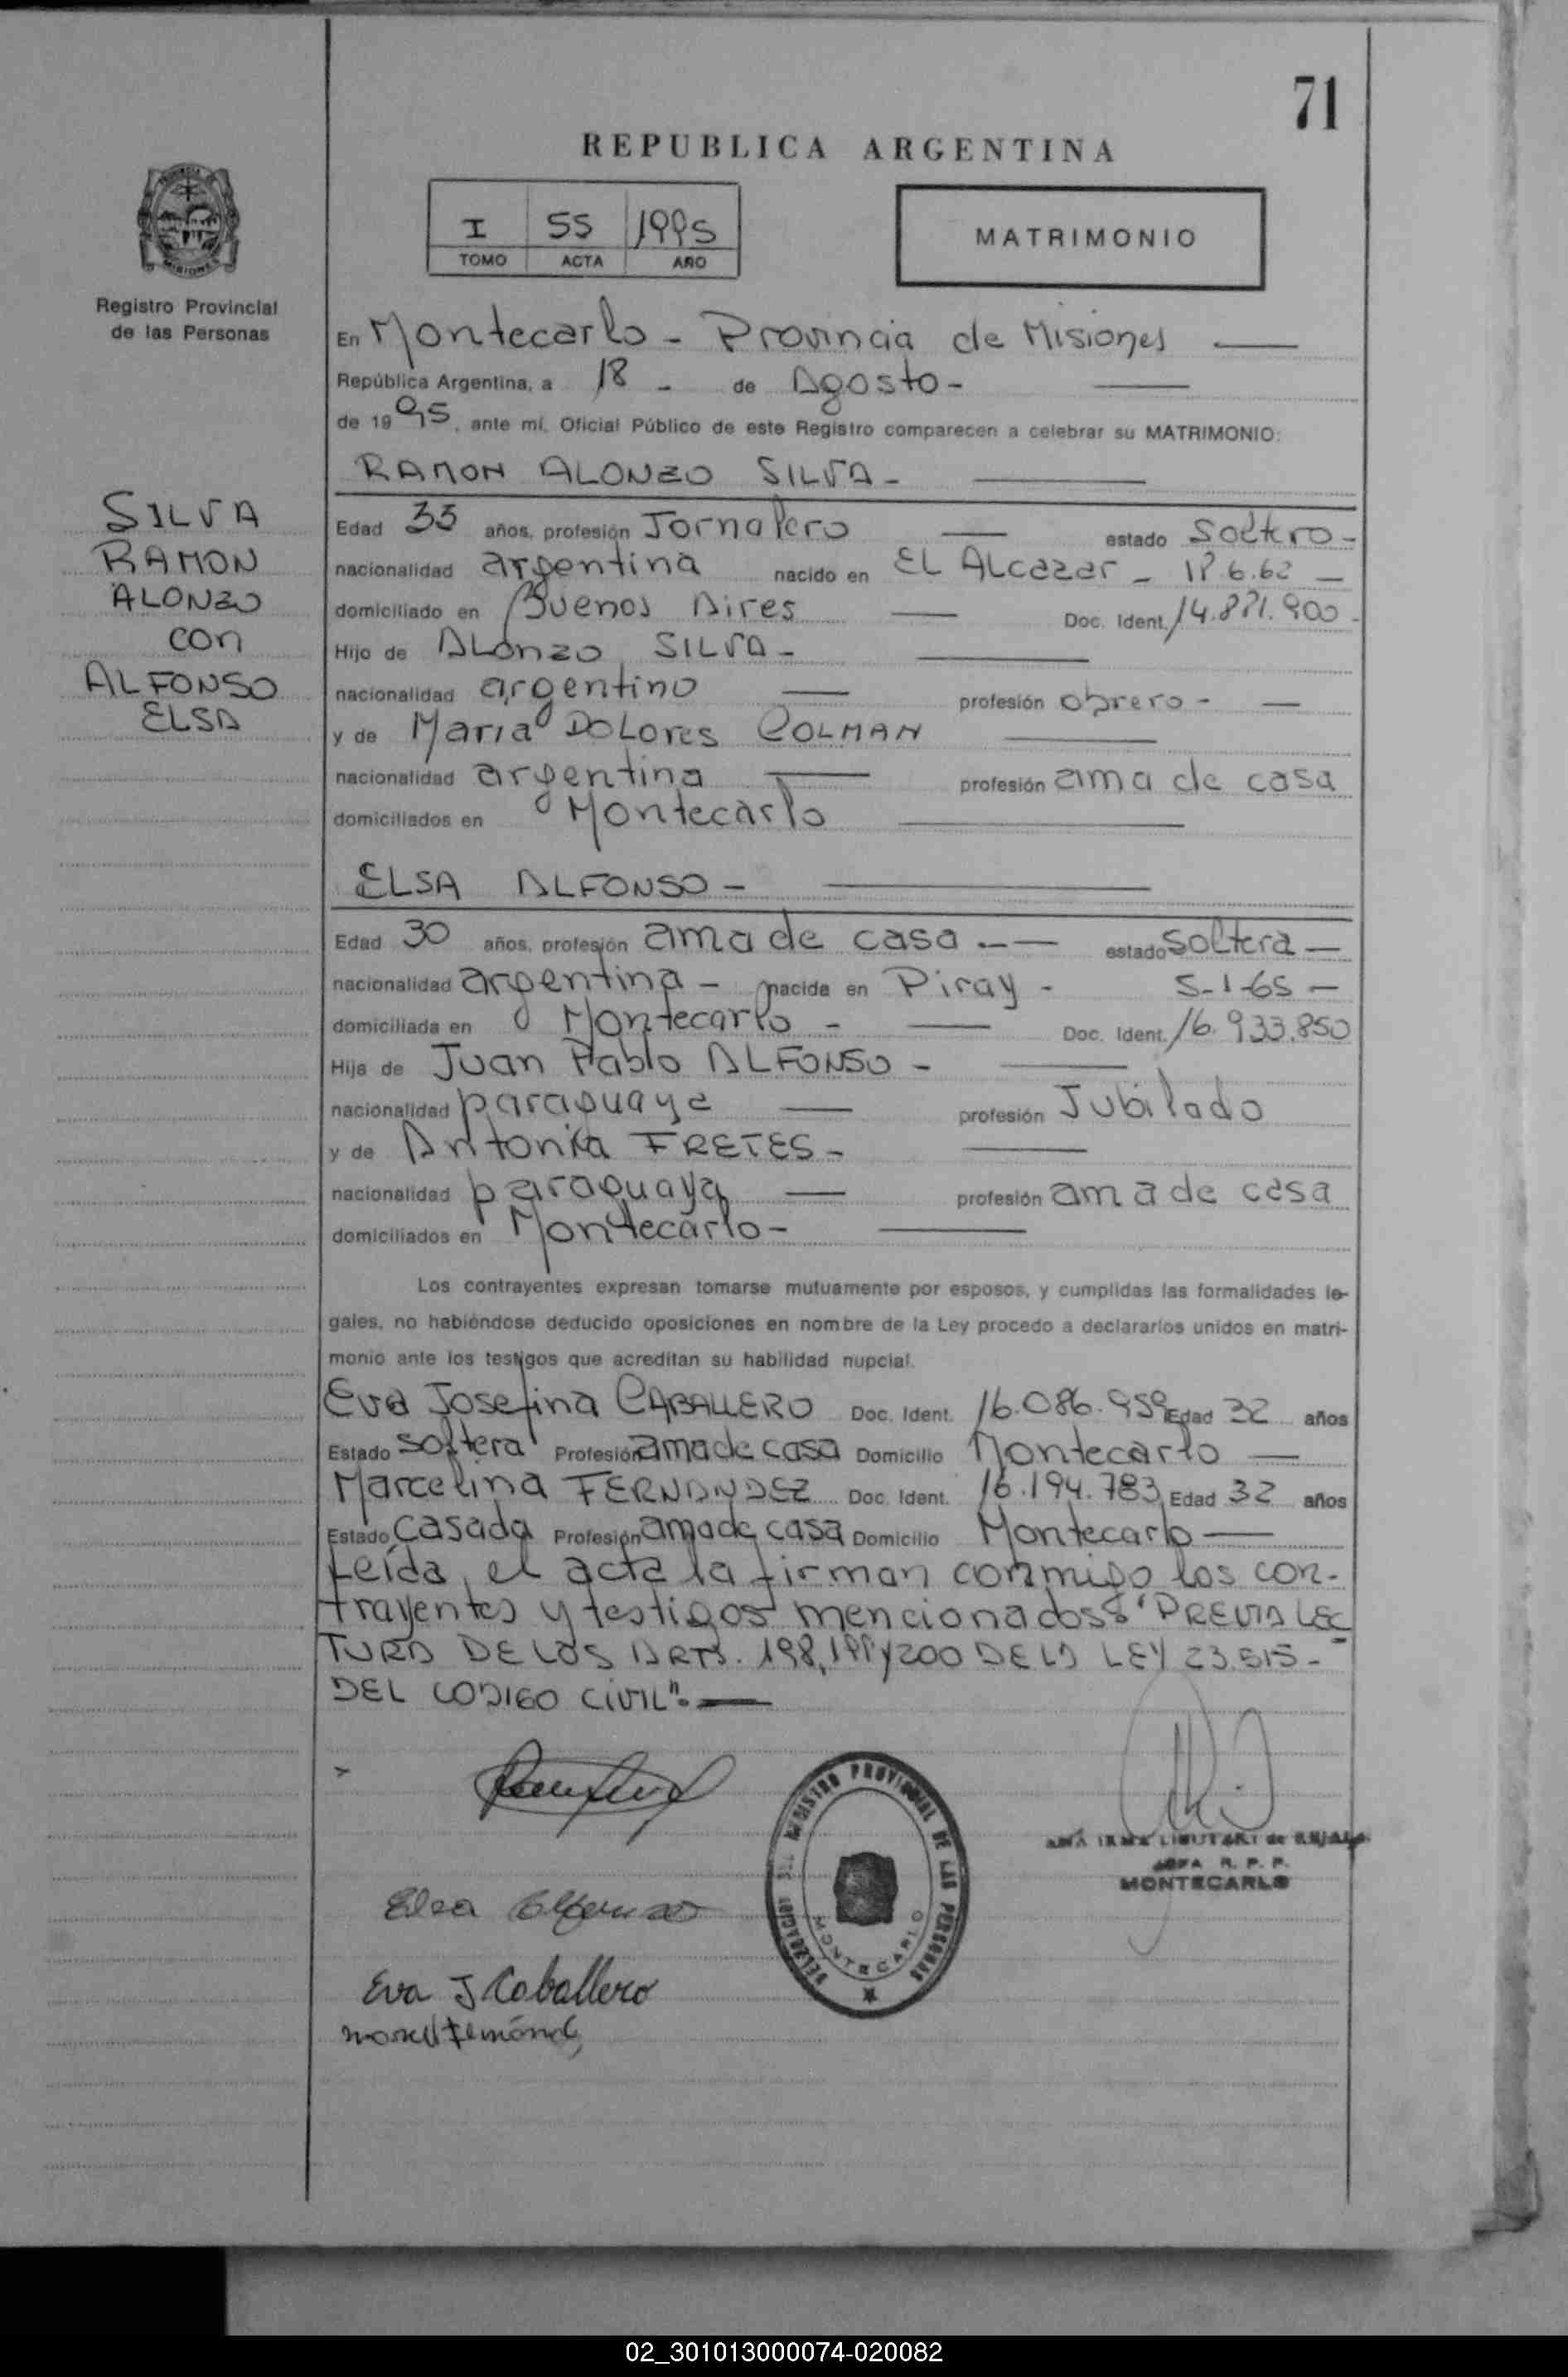 71
REPUBLICA ARGENTINA
I 55 1995
TOMO ACTA AÑO
MATRIMONIO
MISIONES
Registro Provincial
de las Personas
En Montecarlo - Provincia de Misiones
República Argentina, a 18 - de Agosto -
de 1995, ante mí, Oficial Público de este Registro comparecen a celebrar su MATRIMONIO:
RAMON ALONZO SILVA -
SILVA
RAMON
ALONZO
con
ALFONSO
ELSA
Edad 33 años, profesión Jornalero estado Soltero -
nacionalidad argentina nacido en EL Alcazar -
domiciliado en Buenos Aires Doc. Ident.
Hijo de ALonzo SILVA -
nacionalidad argentino profesión obrero -
y de Maria DOLores COLMAN
nacionalidad argentina profesión ama de casa
domiciliados en Montecarlo
ELSA ALFONSO -
Edad 30 años, profesión ama de casa - estado Soltera -
nacionalidad argentina - nacida en Piray - 5-1-65 -
domiciliada en Montecarlo - Doc. Ident. 16.933.850
Hija de Juan Pablo ALFONSO -
nacionalidad paraguaya profesión Jubilado
y de Antonia FRETES -
nacionalidad paraguaya profesión ama de casa
domiciliados en Montecarlo -
Los contrayentes expresan tomarse mutuamente por esposos, y cumplidas las formalidades le-
gales, no habiéndose deducido oposiciones en nombre de la Ley procedo a declararlos unidos en matri-
monio ante los testigos que acreditan su habilidad nupcial.
Eva Josefina CABALLERO Doc. Ident. 16.086.959 Edad 32 años
Estado soltera Profesión ama de casa Domicilio Montecarlo
Marcelina FERNANDEZ Doc. Ident. 16.194.783 Edad 32 años
Estado Casada Profesión ama de casa Domicilio Montecarlo
Leída, el acta la firman conmigo los con-
trayentes y testigos mencionados: "PREVIA LEC
TURA DE LOS ARTS. 198, 199 y 200 DE LA LEY 23.515 -
DEL CODIGO CIVIL".
DELEGACION DEL REGISTRO PROVINCIAL DE LAS PERSONAS
MONTECARLO
ANA IRMA de
JEFA R. P. P.
MONTECARLO
Elsa Alfonso
Eva J Caballero
02_301013000074-020082